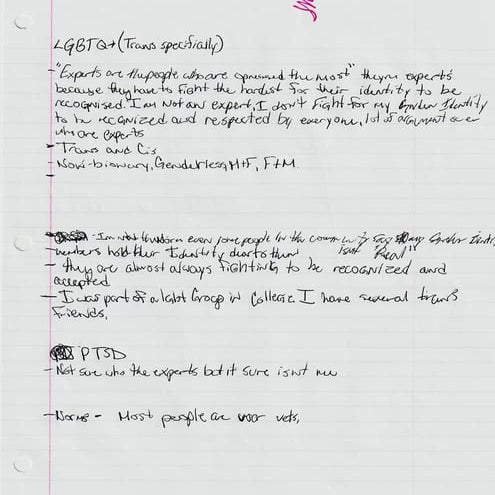 LGBTQ+ (Trans specifically)
- "Experts are the people who are oppressed the most" they're experts
because they have to fight the hardest for their identity to be
recognised. I am not an expert, I don't fight for my Gender Identity
to be recognized and respected by everyone, lot of argument over
who are experts
- Trans and Cis
- Non-bionary, Genderless, MtF, FtM.
-
- Im not even some people in the community say my Gender Identity
isnt "Real"
- members hold their Identity dear to them
- they are almost always fighting to be recognized and
accepted
- I was part of a lgbt Group in College. I have several trans
Friends.
PTSD
- Not sure who the experts but it sure isnt me
- Norms - Most people are war vets,